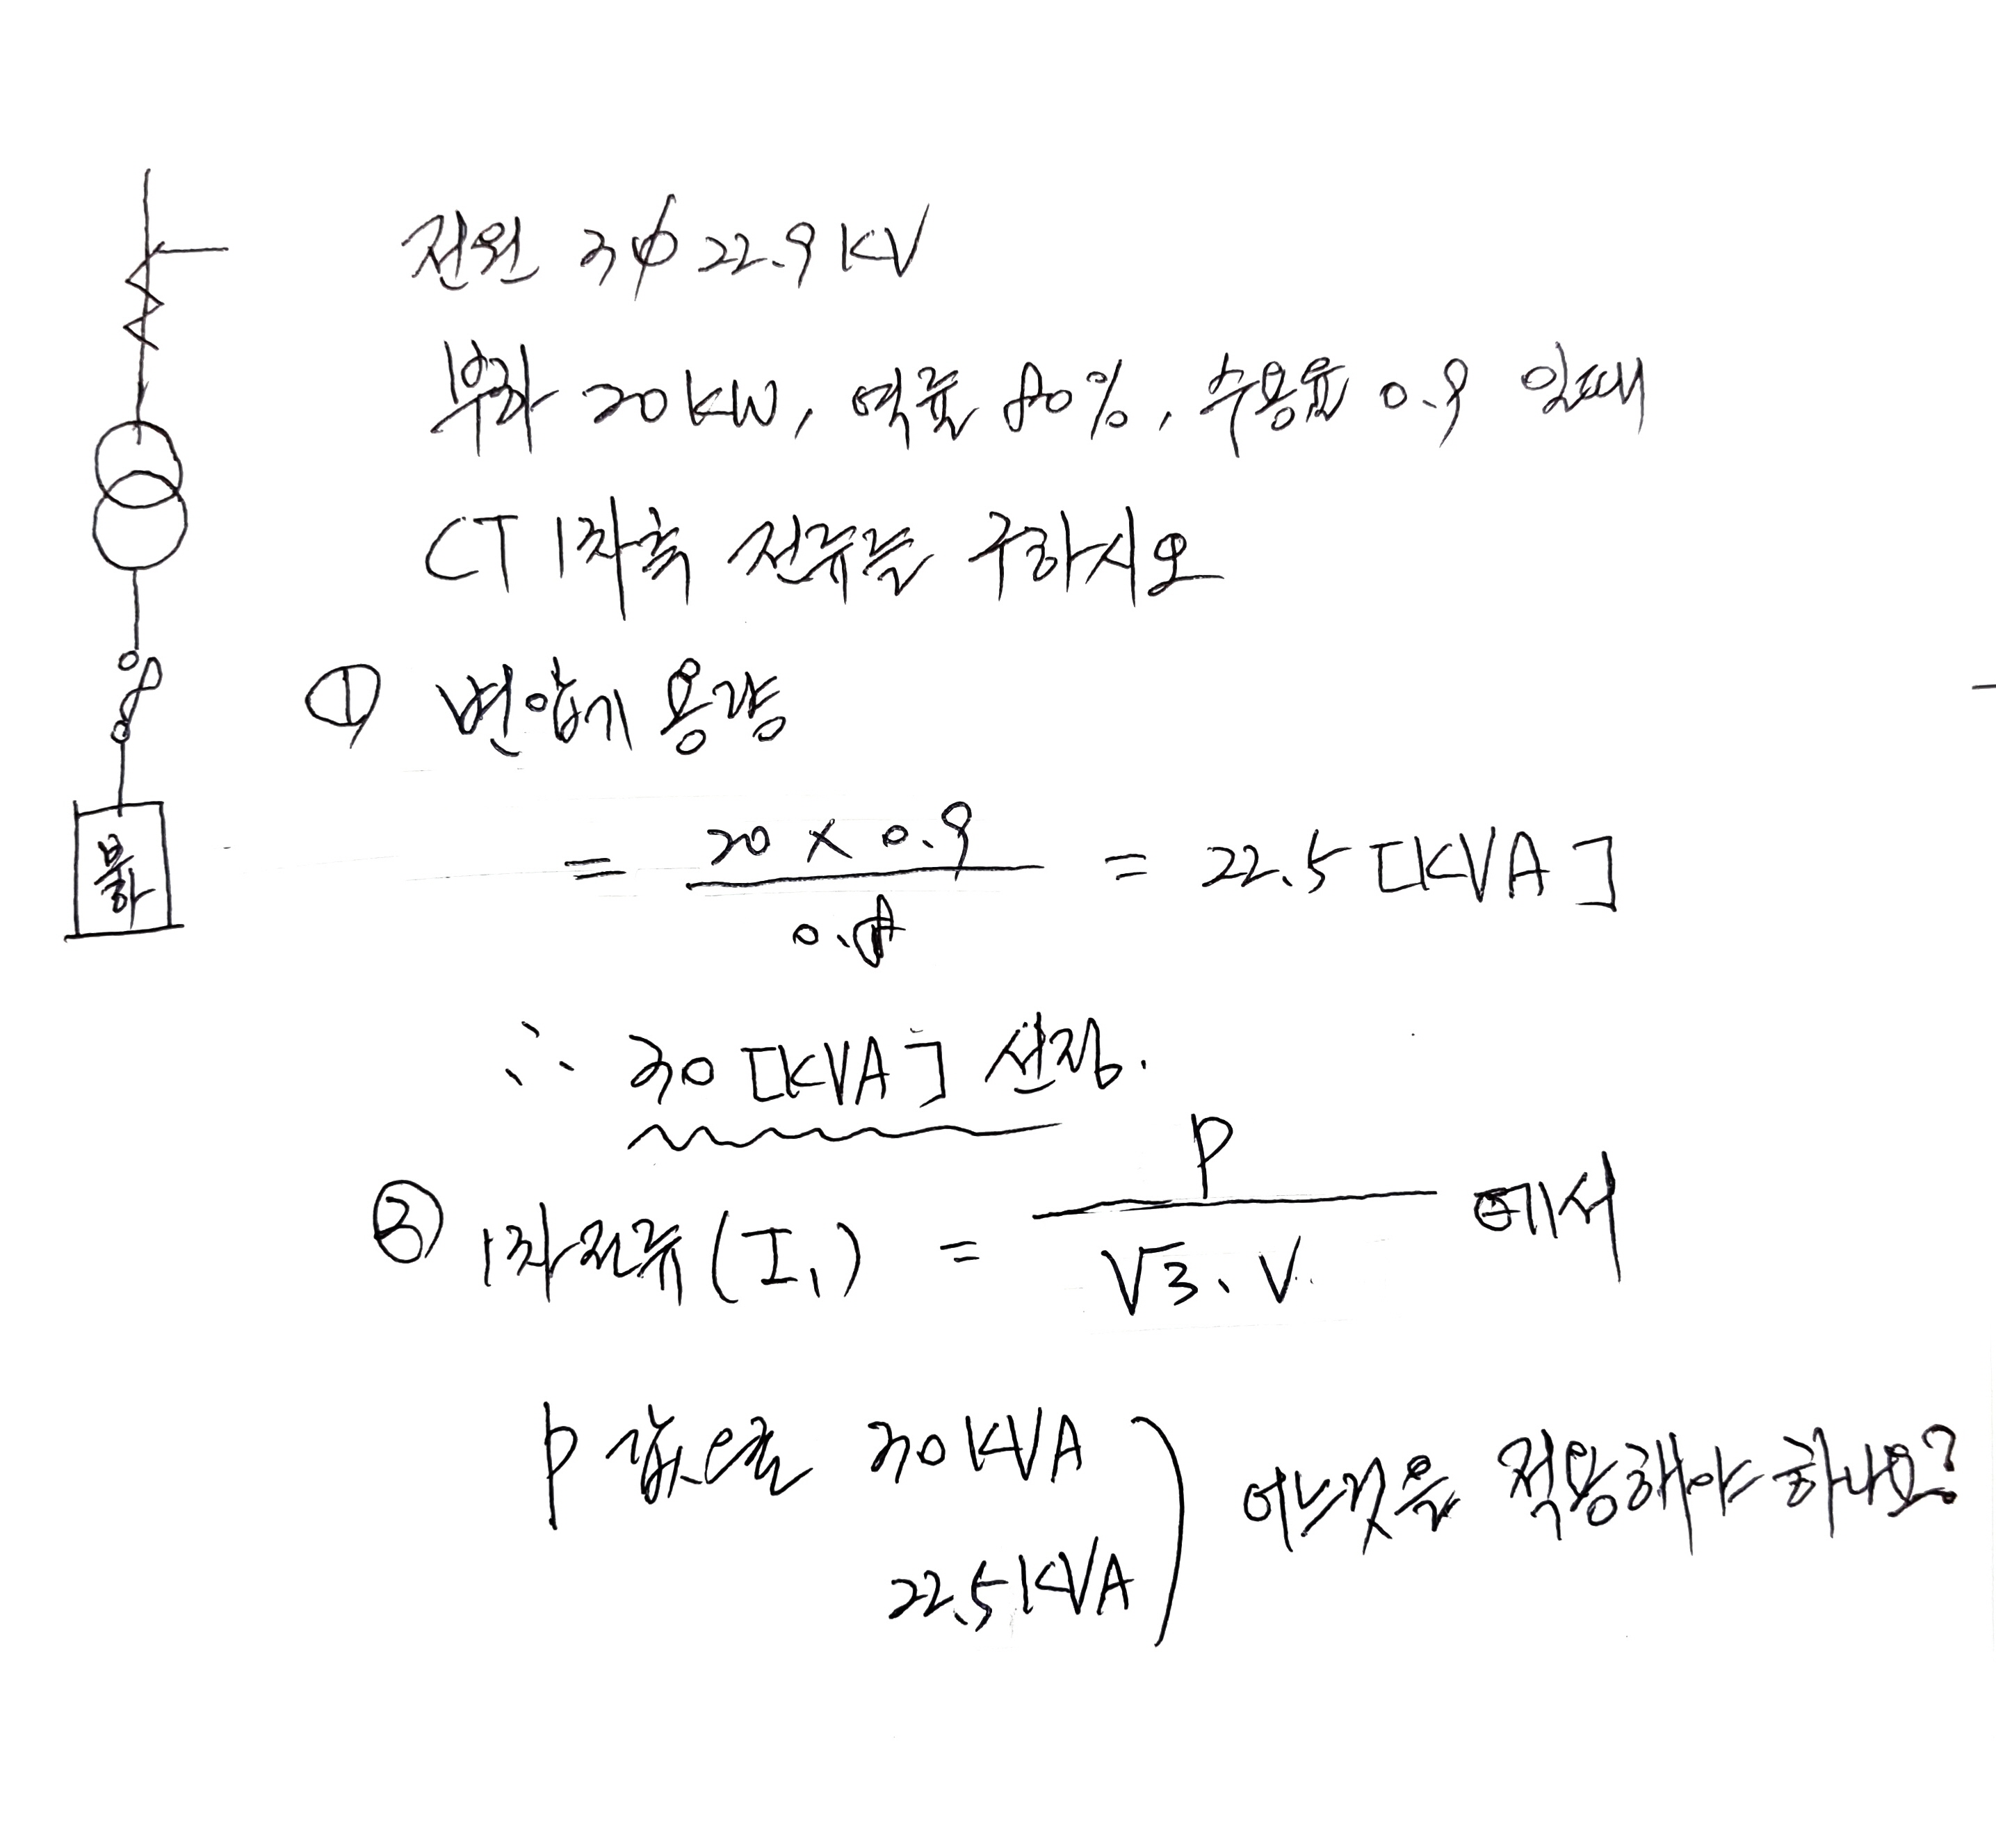 전원 3φ 22.9 KV
부하 20 KW, 역률 80%, 수용률 0.9 일때
CT 1차측 전류를 구하시오
① 변압기 용량
= 20 × 0.9 / 0.8 = 22.5 [KVA]
부하
∴ 30 [KVA] 선정.
② 1차전류 (I₁) = P / √3 · V 에서
P 값은 30 KVA
22.5 KVA
어느것을 적용해야 하나요?